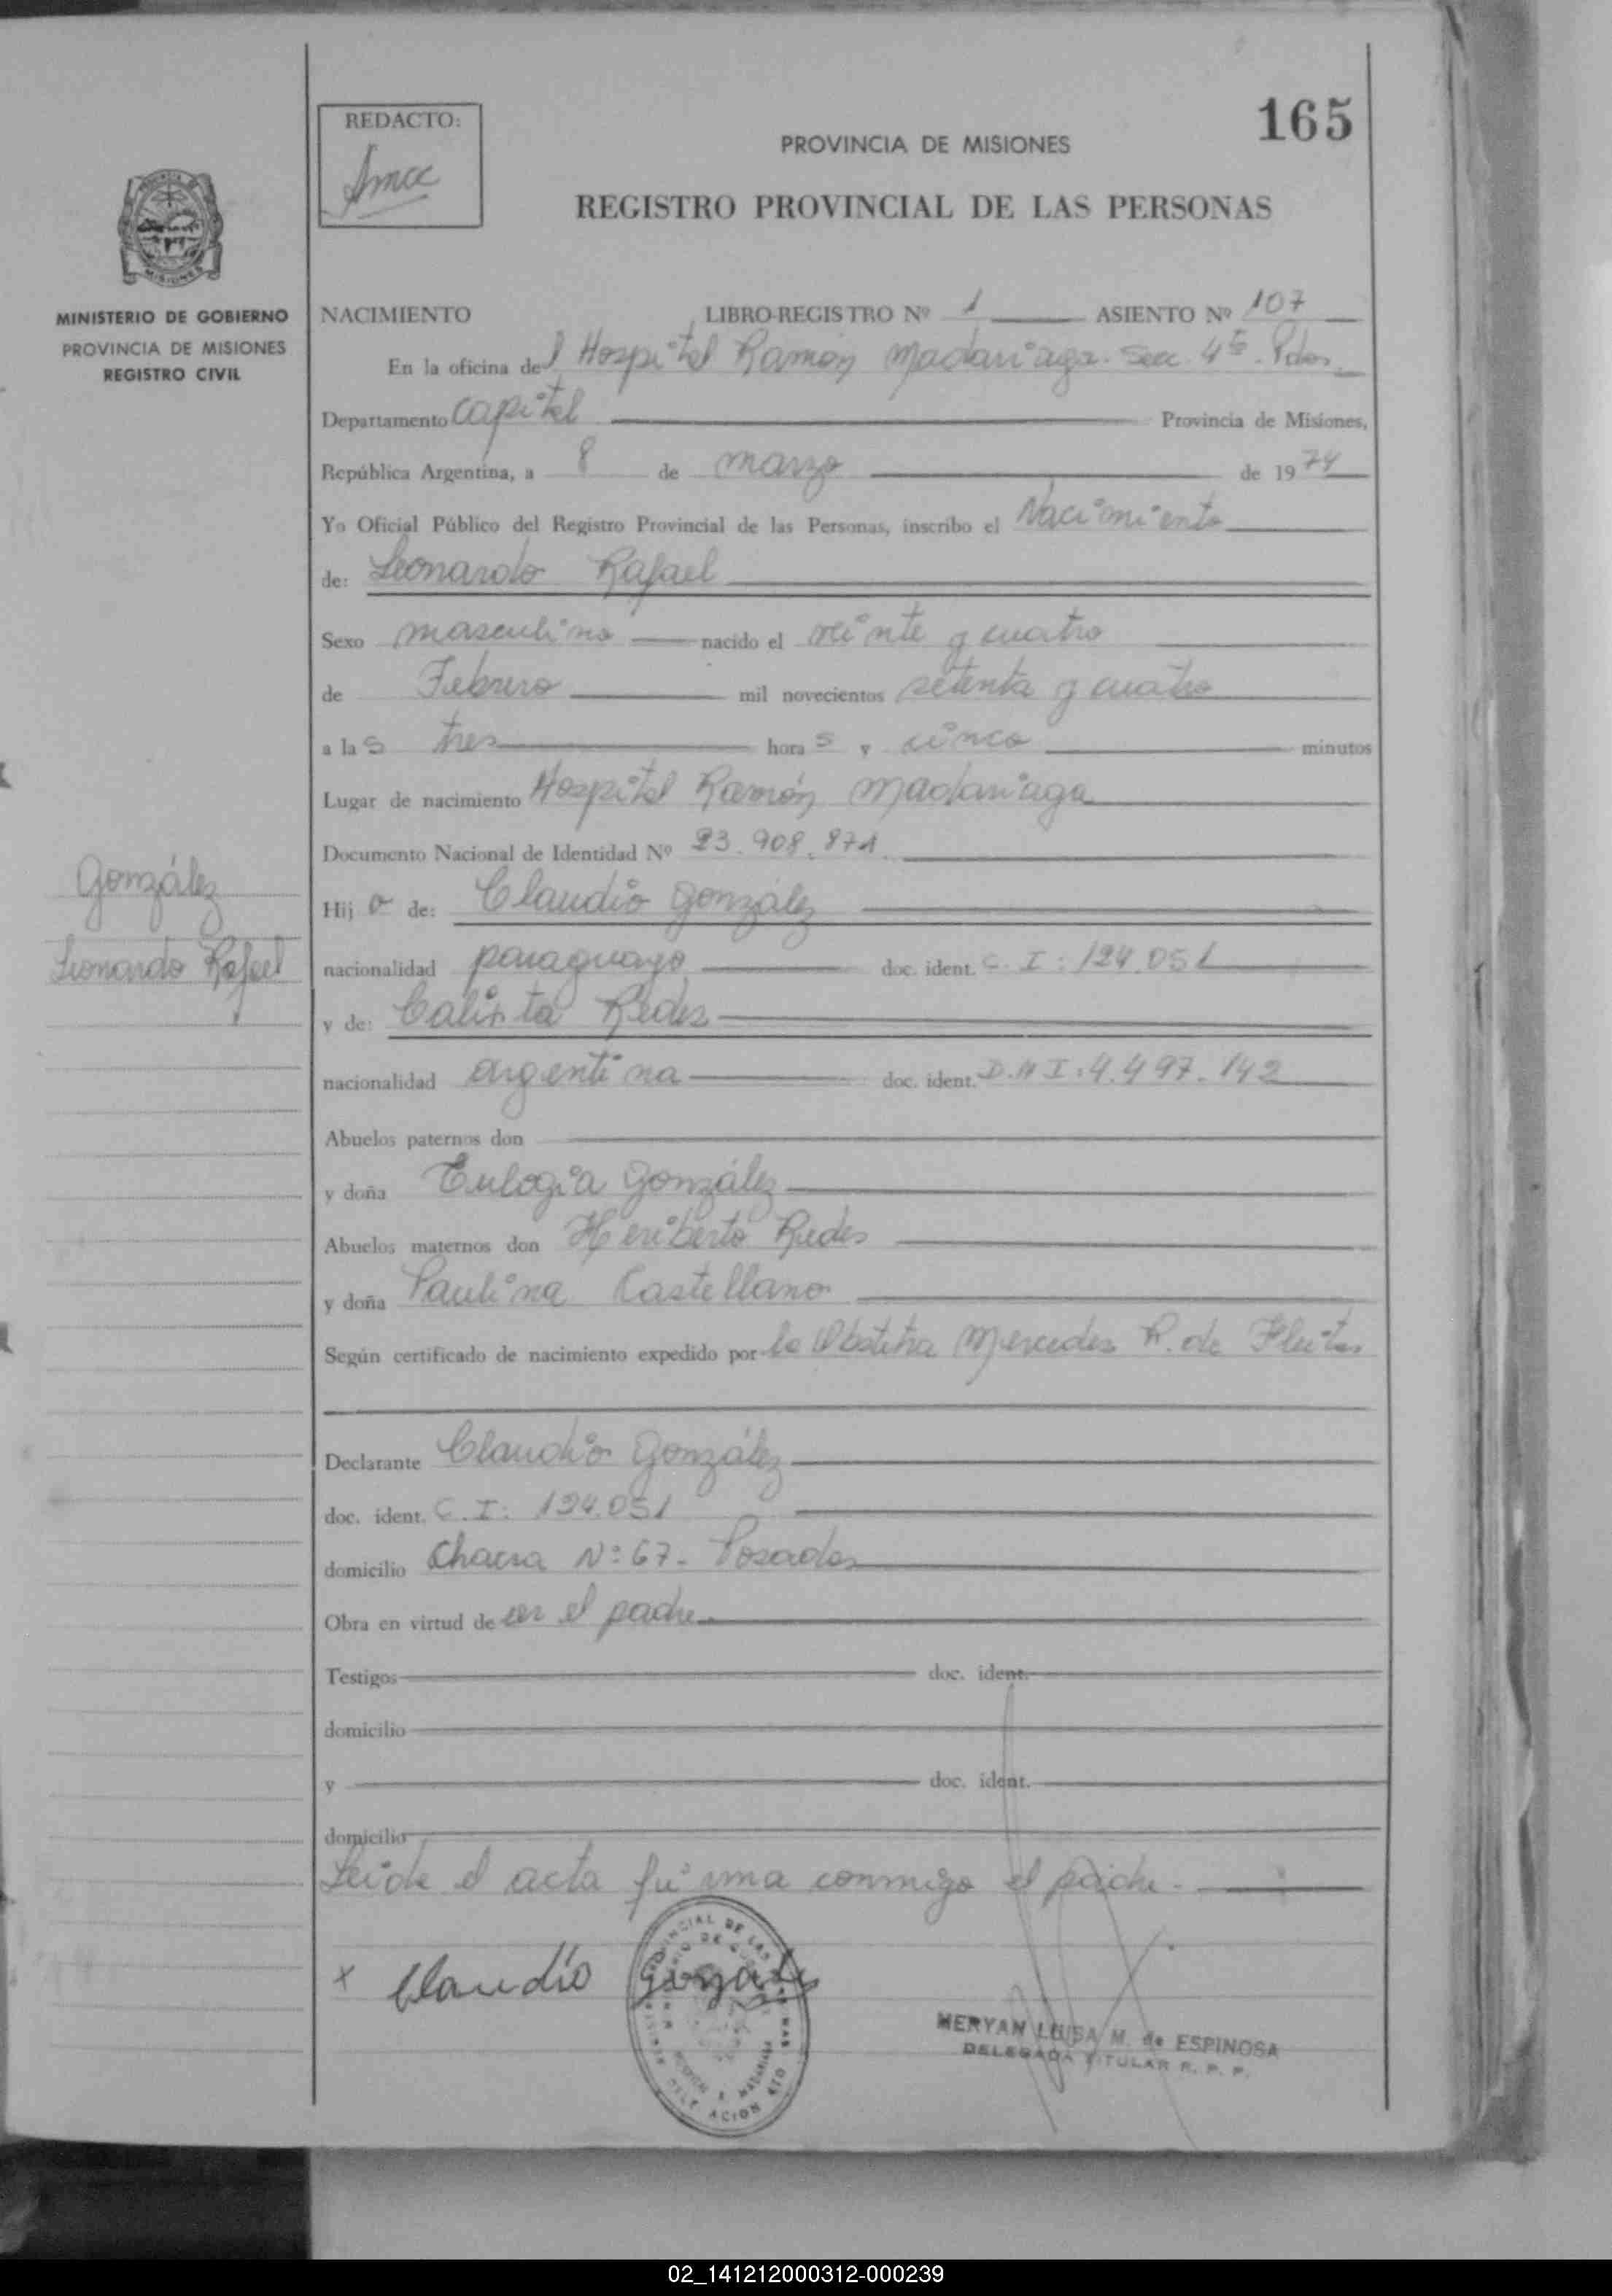 165
REDACTO:
PROVINCIA DE MISIONES
REGISTRO PROVINCIAL DE LAS PERSONAS
MINISTERIO DE GOBIERNO
PROVINCIA DE MISIONES
REGISTRO CIVIL
NACIMIENTO LIBRO-REGISTRO Nº 1 ASIENTO Nº 107
En la oficina del Hospital Ramón Madariaga. Secc. 4ta. Pdas.
Departamento Capital Provincia de Misiones,
República Argentina, a 8 de marzo de 1974
Yo Oficial Público del Registro Provincial de las Personas, inscribo el Nacimiento
de: Leonardo Rafael
Sexo masculino nacido el veinte y cuatro
de Febrero mil novecientos setenta y cuatro
a las tres horas y cinco minutos
Lugar de nacimiento Hospital Ramón Madariaga
Documento Nacional de Identidad Nº 23.908.871
González
Leonardo Rafael
Hijo de: Claudio González
nacionalidad paraguayo doc. ident. C. I: 124.051
y de: Calixta Redes
nacionalidad argentina doc. ident. D.N.I. 4.497.142
Abuelos paternos don
y doña Eulogia González
Abuelos maternos don Heriberto Redes
y doña Paulina Castellano
Según certificado de nacimiento expedido por la Obstetra Mercedes R. de Fleitas
Declarante Claudio González
doc. ident. C. I: 124.051
domicilio Chacra Nº 67- Posadas
Obra en virtud de ser el padre.
Testigos doc. ident.
domicilio
y doc. ident.
domicilio
Leída el acta firma conmigo el padre.
x Claudio Gonzalez
MERYAN LUISA M. de ESPINOSA
DELEGADA TITULAR R. P. P.
02_141212000312-000239